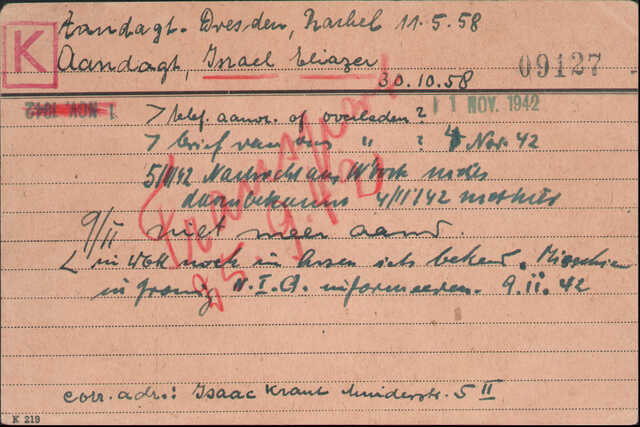 K
Aandagt-Dresden, Rachel 11.5.58
Aandagt, Israel Eliazer
30.10.58
09127
1 NOV. 1942
11 NOV. 1942
> telef. aanvr. of overleden?
> brief van ons " " ? 4 Nov. 42
5/11/42 Nachricht aus W'bork nichts
darüber bekannt 4/11/42
Transport
25.9.42
9/11 niet meer aanw.
in WBK noch in Assen iets bekend. Misschien
in Groning N.I.G. informeeren. 9.11.42
corr. adr.: Isaac Krant Muiderstr. 5 II
K 219